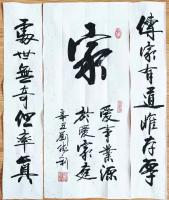 傳家有道惟存厚
家
愛事業源
於愛家庭
辛丑
處世無奇但率真